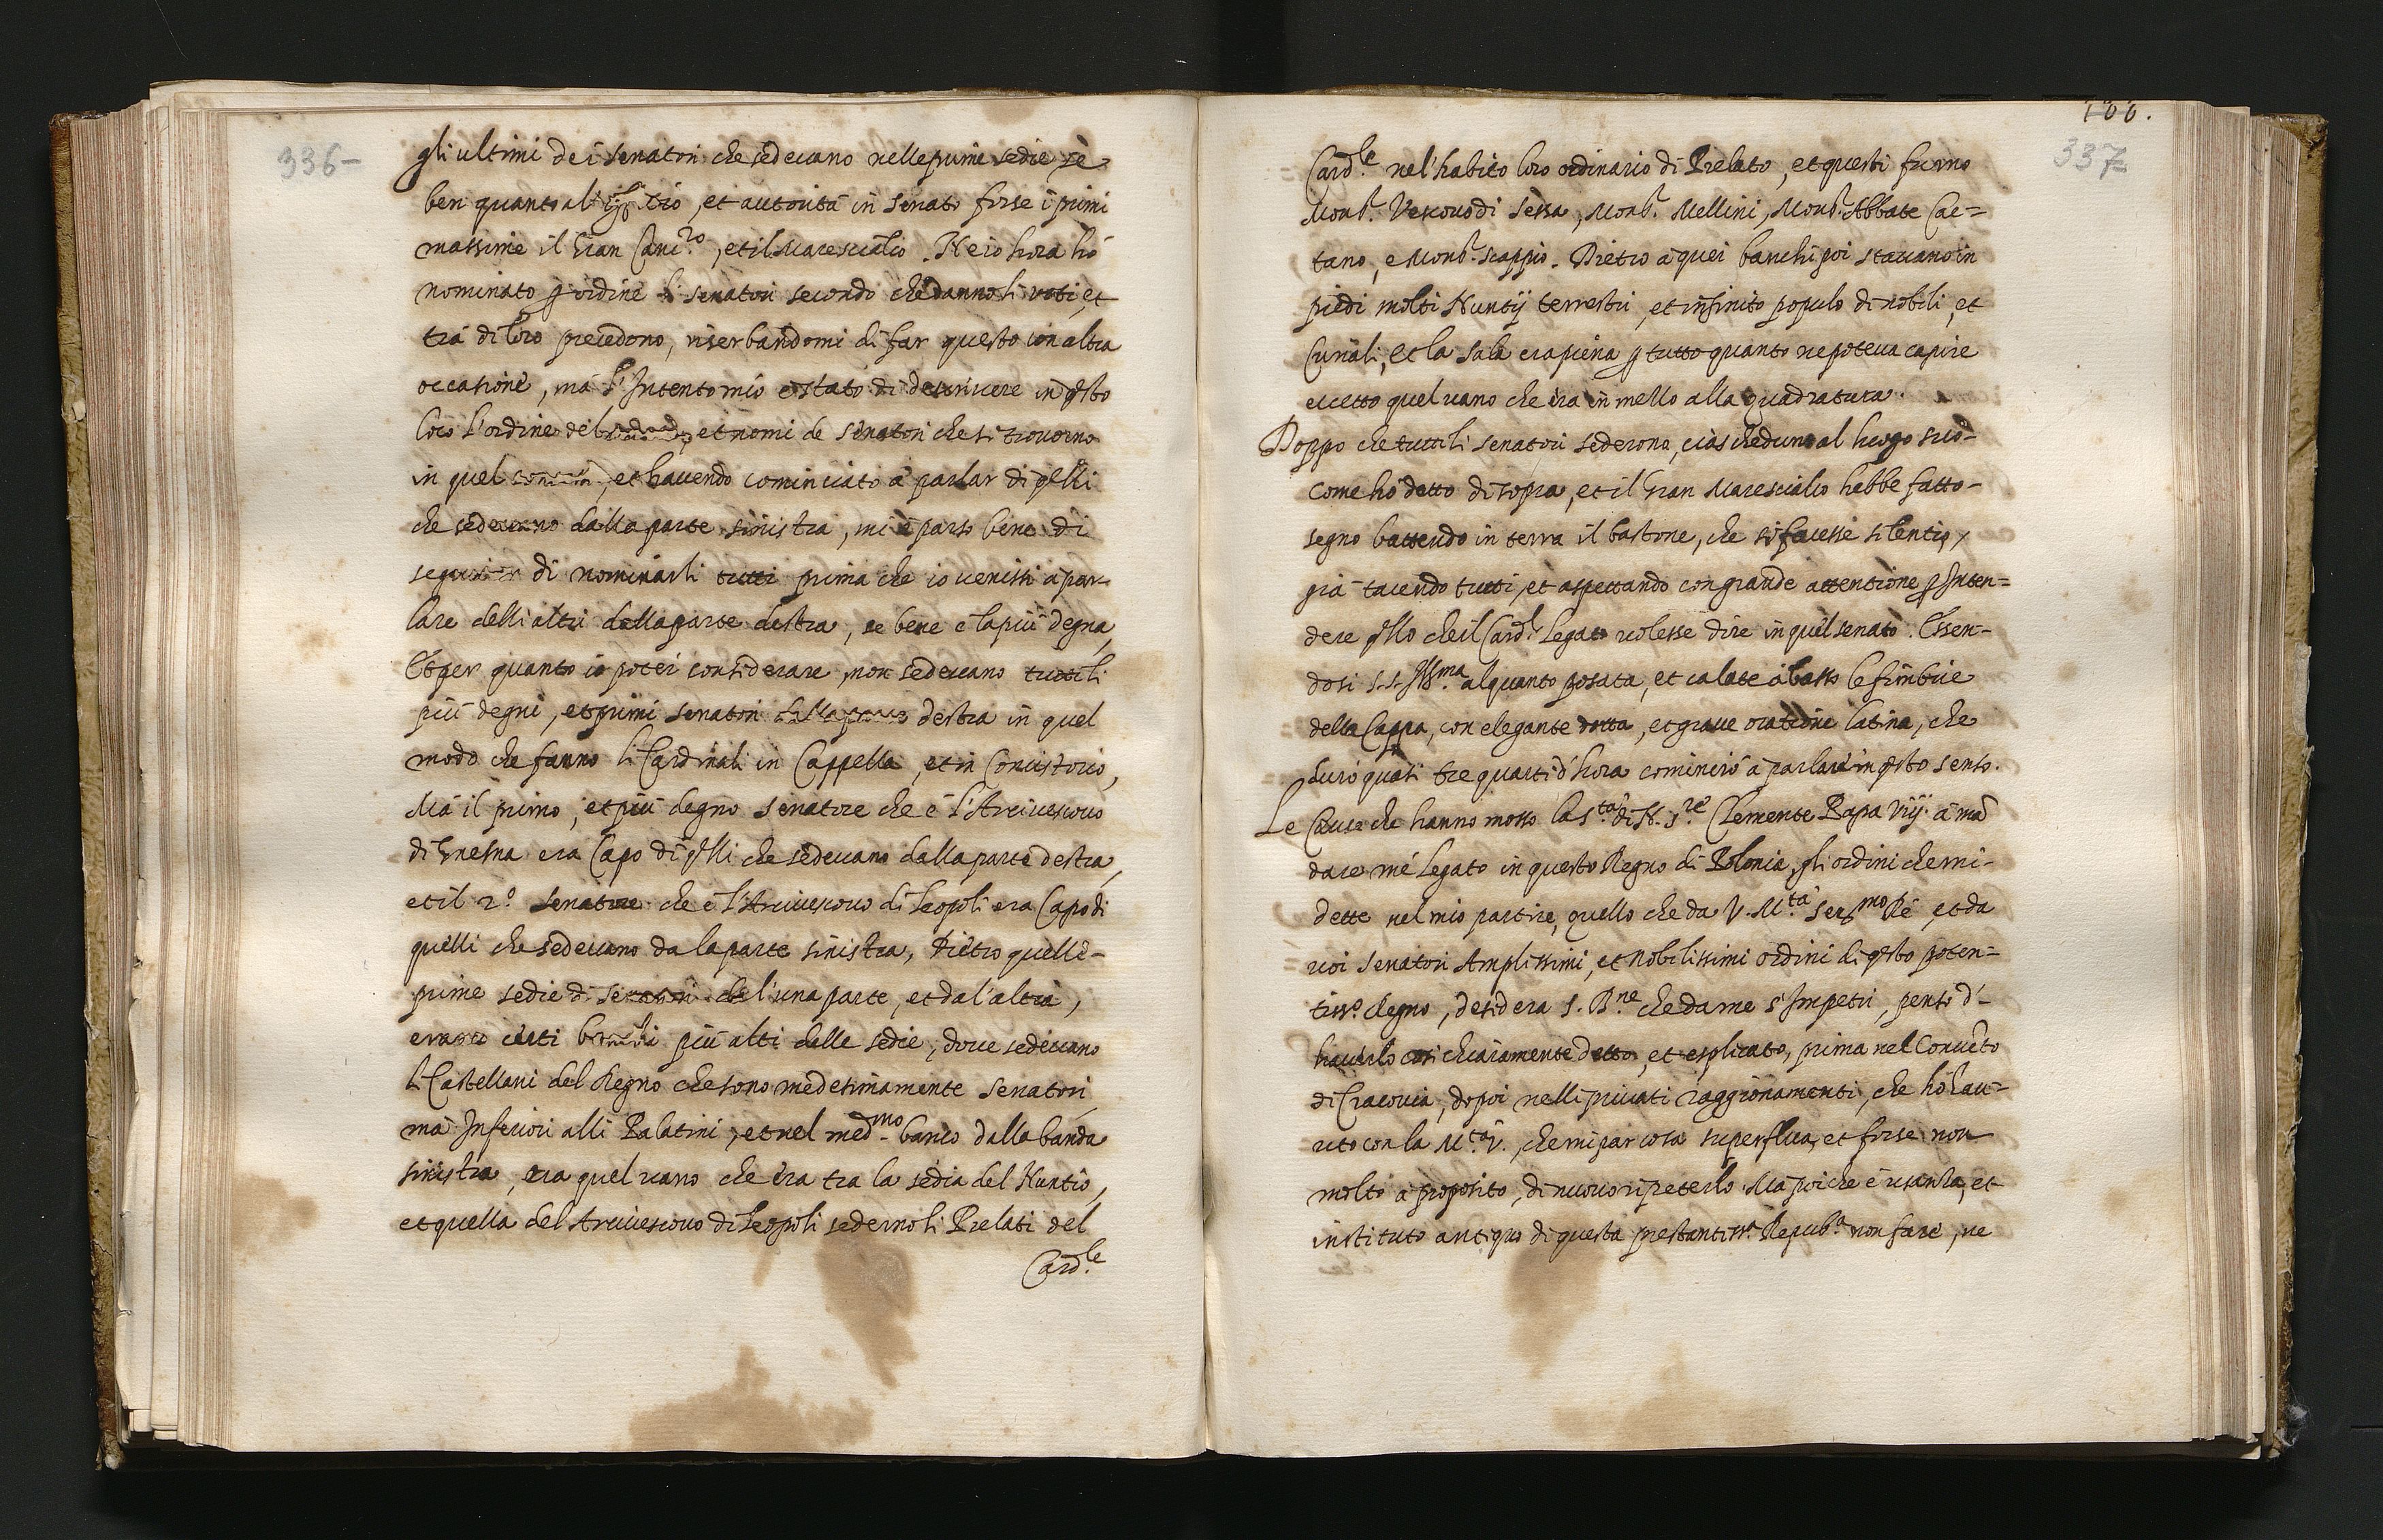 336-
gli ultimi dei senatori che sedeuano nelle prime sedie se
ben quanto al officio, et autorità in senato forse i primi
massime il Gran Canc.ro, et il Marescialco. Ne io hora hò
nominato ꝑ ordine li senatori secondo che danno li voti, et
trà di loro precedono, riserbandomi di far questo con altra
occasione, mà l'Intento mio è stato di descriuere in q̃sto
loco l'ordine del, et nomi de senatori che si trouorno
in quel, et hauendo cominciato à parlar di q̃lli
che sedeuano dalla parte sinistra, mi è parso bene di
seguitar di nominarli tutti prima che io uenissi a par-
lare delli altri dalla parte destra, se bene è la più degna,
Et per quanto io potei considerare, non sedeuano tutti li
più degni, et primi senatori dalla parte destra in quel
modo che fanno li Cardinali in Cappella, et in Concistorio,
Mà il primo, et più degno senatore che è l'Arciuescouo
di Gnesna era Capo di q̃lli che sedeuano dalla parte destra,
et il 2.º senatore che è l'Arciuescouo di Leopoli era Capo di
quelli che sedeuano da la parte sinistra, Dietro quelle-
prime sedie di senatori del'una parte, et dal'altra,
erano certi banchi più alti delle sedie, doue sedeuano
li Castellani del Regno che sono medesimamente senatori
mà Inferiori alli Palatini, et nel med.mo banco dalla banda
sinistra, era quel uano che era tra la sedia del Nuntio,
et quella del Arciuescouo di Leopoli sederno li Prelati del
Card.le
166.
337
Card.le nel'habito loro ordinario di Prelato, et questi furno
Mons.r Vescouo di Sessa, Mons.r Mellini, Mons.r Abbate Cae=
tano, e Mons.r Scappio. Dietro à quei banchi poi stauano in
piedi molti Nuntij terrestri, et infinito populo di nobili, et
Curiali, et la sala era piena ꝑ tutto quanto ne poteua capire
eccetto quel uano che era in mezzo alla quadratura.
Doppo che tutti li senatori sederono, ciascheduno al luogo suo-
come hò detto di sopra, et il Gran Marescialco hebbe fatto-
segno battendo in terra il bastone, che si facesse silentio,
già tacendo tutti, et aspettando con grande attentione ꝑ Inten=
dere q̃llo che il Card.l Legato uolesse dire in quel senato. Essen-
dosi S.S. Ill.ma alquanto posata, et calate à basso le fimbrie
della Cappa, con elegante dotta, et graue oratione latina, che
durò quasi tre quarti d'hora cominciò à parlare in q̃sto senso.
Le Cause che hanno mosso la S.tà di N. S.re Clemente Papa Viij. à mã
dare mè Legato in questo Regno di Polonia, gli ordini che mi-
dette nel mio partire, quello che da V. M.tà Ser.mo Rè, et da
uoi senatori Amplissimi, et Nobilissimi ordini di q̃sto poten=
tiss.º Regno, desidera S. B.ne che da me s'Impetri, penso d'-
hauerlo cosi chiaramente detto, et esplicato, prima nel Conuẽto
di Cracouia, dopoi nelli priuati raggionamenti, che hò hau=
uto con la M.tà V., che mi par cosa superflua, et forse non
molto à proposito, di nuouo ripeterlo. Mà poiche è usanza, et
instituto antiquo di questa prestantiss.a Repub.a non fare, ne